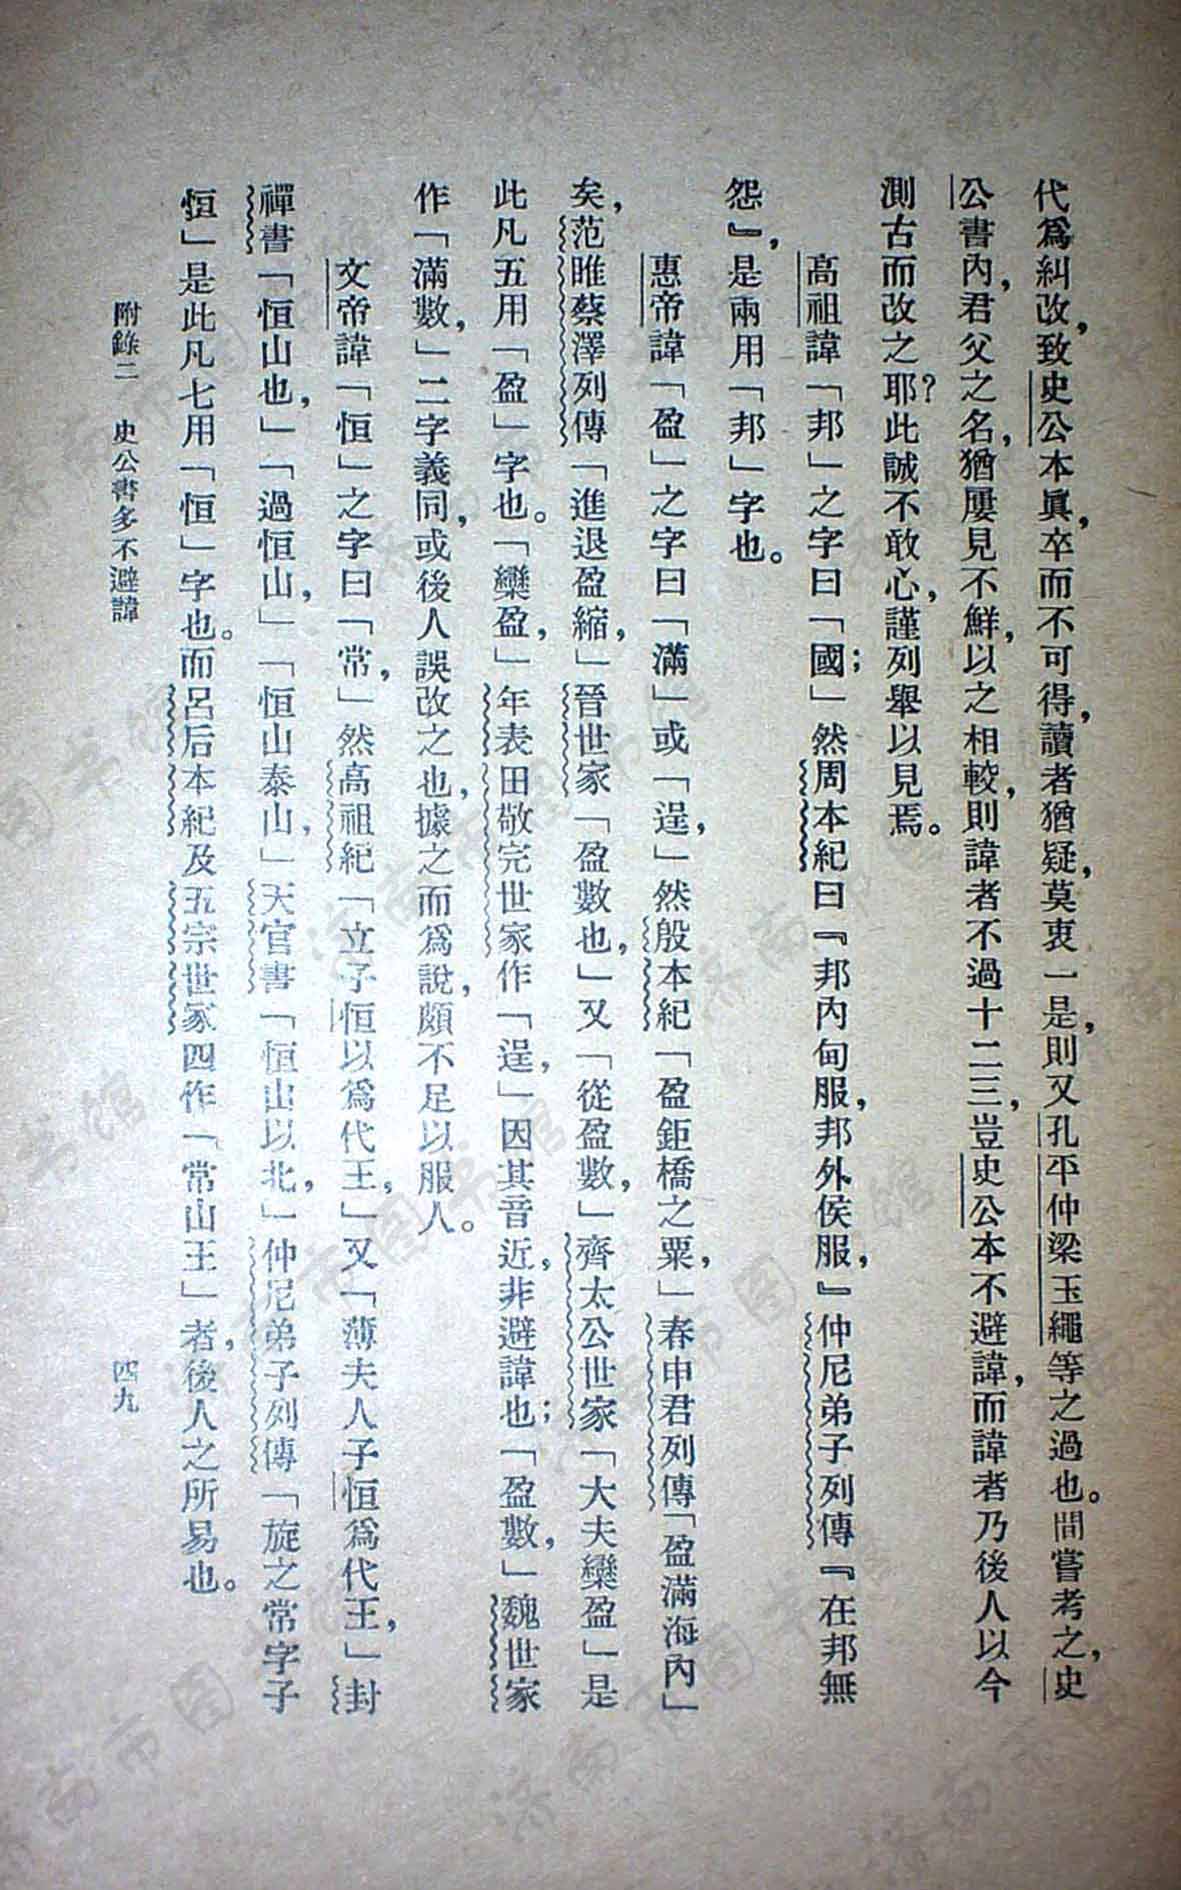 代爲糾改，致史公本眞，卒而不可得，讀者猶疑，莫衷一是，則又孔平仲梁玉繩等之過也。間嘗考之，史
公書內，君父之名，猶屢見不鮮，以之相較，則諱者不過十二三，豈史公本不避諱，而諱者乃後人以今
測古而改之耶？此誠不敢心，謹列舉以見焉。
高祖諱「邦」之字曰「國」；然周本紀曰『邦內甸服，邦外侯服，』仲尼弟子列傳『在邦無
怨』，是兩用「邦」字也。
惠帝諱「盈」之字曰「滿」或「逞，」然殷本紀「盈鉅橋之粟，」春申君列傳「盈滿海內」
矣，范睢蔡澤列傳「進退盈縮，」晉世家「盈數也，」又「從盈數，」齊太公世家「大夫欒盈」是
此凡五用「盈」字也。「欒盈，」年表田敬完世家作「逞，」因其音近，非避諱也；「盈數，」魏世家
作「滿數，」二字義同，或後人誤改之也，據之而爲說，頗不足以服人。
文帝諱「恒」之字曰「常，」然高祖紀「立子恒以爲代王，」又「薄夫人子恒爲代王，」封
禪書「恒山也，」「過恒山，」「恒山泰山，」天官書「恒山以北，」仲尼弟子列傳「旋之常字子
恒」是此凡七用「恒」字也。而呂后本紀及五宗世家四作「常山王」者，後人之所易也。
附錄二　史公書多不避諱　四九
濟南市图书馆